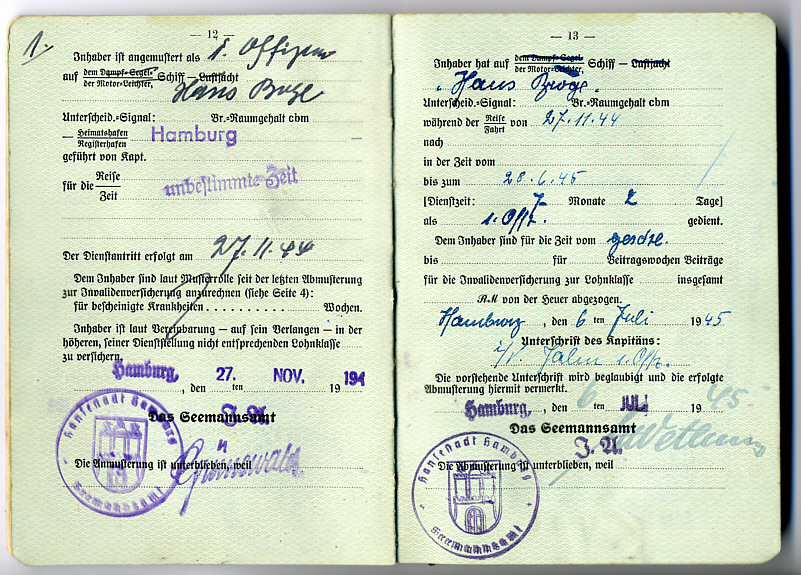 1.
— 12 —
Inhaber ist angemustert als 1. Offizier
auf dem Dampf-Segel- Schiff — Lustjacht
der Motor-Leichter,
Hans Broge
Unterscheid.-Signal: Br.-Raumgehalt cbm
— Heimatshafen Hamburg —
Registerhafen
geführt von Kapt.
für die Reise unbestimmte Zeit
Zeit
Der Dienstantritt erfolgt am 27.11.44
Dem Inhaber sind laut Musterrolle seit der letzten Abmusterung
zur Invalidenversicherung anzurechnen (siehe Seite 4):
für bescheinigte Krankheiten . . . . . . . . . . Wochen.
Inhaber ist laut Vereinbarung — auf sein Verlangen — in der
höheren, seiner Dienststellung nicht entsprechenden Lohnklasse
zu versichern.
Hamburg, , den 27. ten NOV. 19 194
Das Seemannsamt
J. A.
Die Anmusterung ist unterblieben, weil
Hansestadt Hamburg
Seemannsamt
— 13 —
Inhaber hat auf dem Dampf-Segel- Schiff — Lustjacht
der Motor-Leichter,
"Hans Broge".
Unterscheid.-Signal: Br.-Raumgehalt cbm
während der Reise von 27.11.44
Fahrt
nach
in der Zeit vom
bis zum 28.6.45
[Dienstzeit: 7 Monate 2 Tage]
als 1. Offz. gedient.
Dem Inhaber sind für die Zeit vom
bis für Beitragswochen Beiträge
für die Invalidenversicherung zur Lohnklasse insgesamt
RM von der Heuer abgezogen.
Hamburg , den 6 ten Juli 1945
Unterschrift des Kapitäns:
i/V. 1. Offz.
Die vorstehende Unterschrift wird beglaubigt und die erfolgte
Abmusterung hiermit vermerkt.
Hamburg, , den 6 ten JULI 19 45
Das Seemannsamt
J. A.
Die Abmusterung ist unterblieben, weil
Hansestadt Hamburg
Seemannsamt